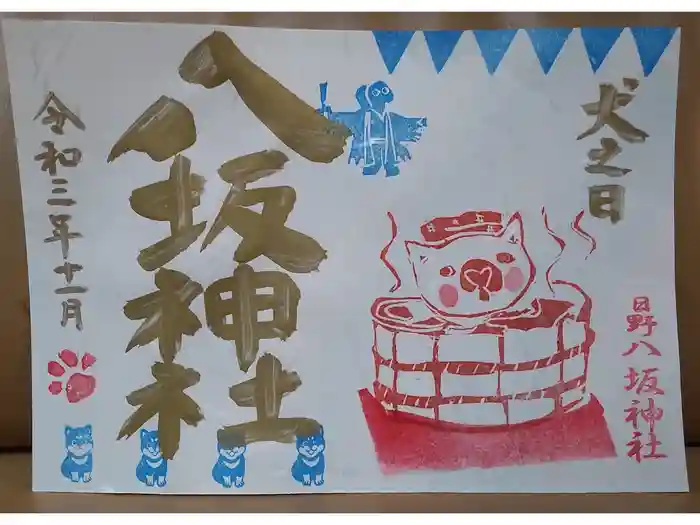 犬之日
八坂神社
令和三年十一月
日野八坂神社